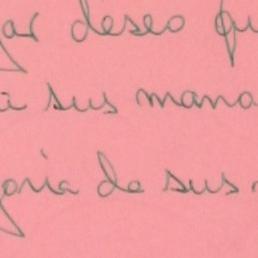 gar deseo qu
a sus mano
oria de sus